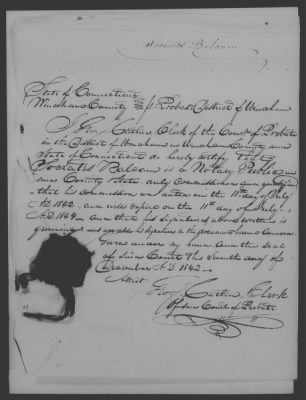 Socrates Balcom
State of Connecticut
Windham County ss Probate District of Windham
I Geo. Catlin, Clerk of the Court of Probate
in the District of Windham in Windham County and
State of Connecticut do hereby certify that
Socrates Balcom is a Notary Public in
said County & State duly Commissioned and qualified
that his commission was dated on the 11th day of July
A.D. 1842, and will expire on the 11th day of July
A.D. 1844 and that his signature above written is
genuine
Given under my hand and the seal
of said Court this day of
December A.D. 1842
Attest
Geo. Catlin, Clerk
of said Court of Probate